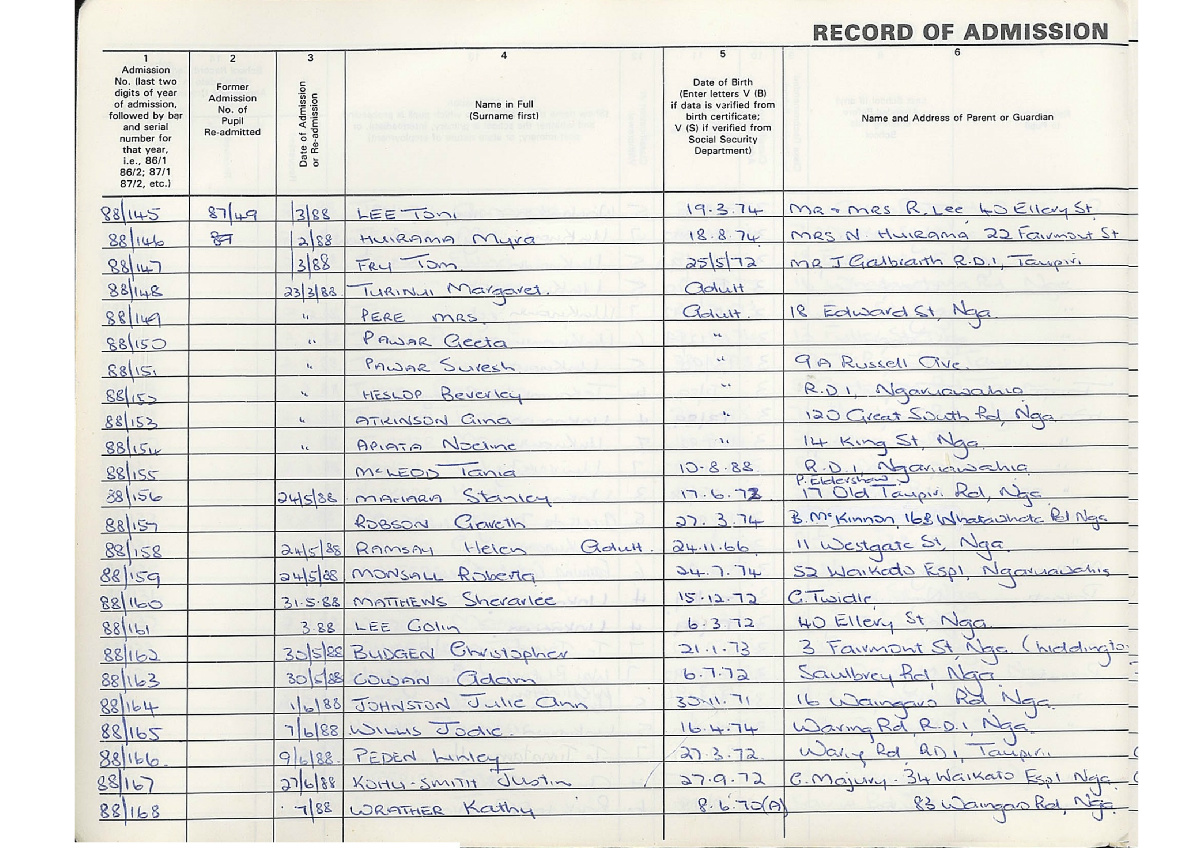 RECORD OF ADMISSION
1 2 3 4 5 6
Admission No. (last two digits of year of admission, followed by bar and serial number for that year, i.e., 86/1 86/2; 87/1 87/2, etc.)
Former Admission No. of Pupil Re-admitted
Date of Admission or Re-admission
Name in Full (Surname first)
Date of Birth (Enter letters V (B) if data is verified from birth certificate; V (S) if verified from Social Security Department)
Name and Address of Parent or Guardian
88/145 87/49 /3/88 LEE Toni 19.3.74 MR + MRS R. Lee 40 Ellery St
88/146 /2/88 HUIRAMA Myra 18.8.74 MRS N HUIRAMA 22 Fairmont St
88/147 /3/88 FRY Tom 25/5/72 MR J Galbraith R.D.1, Taupiri
88/148 23/3/88 TURINUI Margaret. Adult
88/149 " PERE MRS. Adult. 18 Edward St, Nga.
88/150 " PAWAR Geeta "
88/151 " PAWAR Suresh " 9A Russell Ave.
88/152 " HESLOP Beverley " R.D.1, Ngaruawahia
88/153 " ATKINSON Gina " 120 Great South Rd, Nga
88/154 " APIATA Noeline " 14 King St, Nga
88/155 McLEOD Tania 10.8.88 R.D.1, Ngaruawahia
P. Eldershaw
88/156 24/5/88 MAHARA Stanley 17.6.73 17 Old Taupiri Rd, Nga
88/157 ROBSON Gareth 27.3.74 B. McKinnon, 168 Whatawhata Rd Nga
88/158 24/5/88 RAMSAY Helen Adult. 24.11.66 11 Westgate St, Nga.
88/159 24/5/88 MONSALL Roberta 24.7.74 52 Waikato Espl, Ngaruawahia
88/160 31.5.88 MATTHEWS Sheralee 15.12.72 C. Twidle
88/161 3.88 LEE Colin 6.3.72 40 Ellery St, Nga.
88/162 30/5/88 BUDGEN Christopher 21.1.73 3 Fairmont St, Nga.
88/163 30/5/88 COWAN Adam 6.7.72 Saulbrey Rd, Nga.
88/164 1/6/88 JOHNSTON Julie Ann 30.11.71 16 Waingaro Rd, Nga.
88/165 7/6/88 WILLIS Jodie. 16.4.74 Waring Rd, R.D.1, Nga.
88/166. 9/6/88. PEDEN Linley 27.3.72 Rd RD1, Taupiri.
88/167 27/6/88 KOHU-SMITH Justin 27.9.72 C. Majury - 34 Waikato Espl Nga
88/168 7/88 WRATHER Kathy 8.6.70(A) 83 Waingaro Rd, Nga.